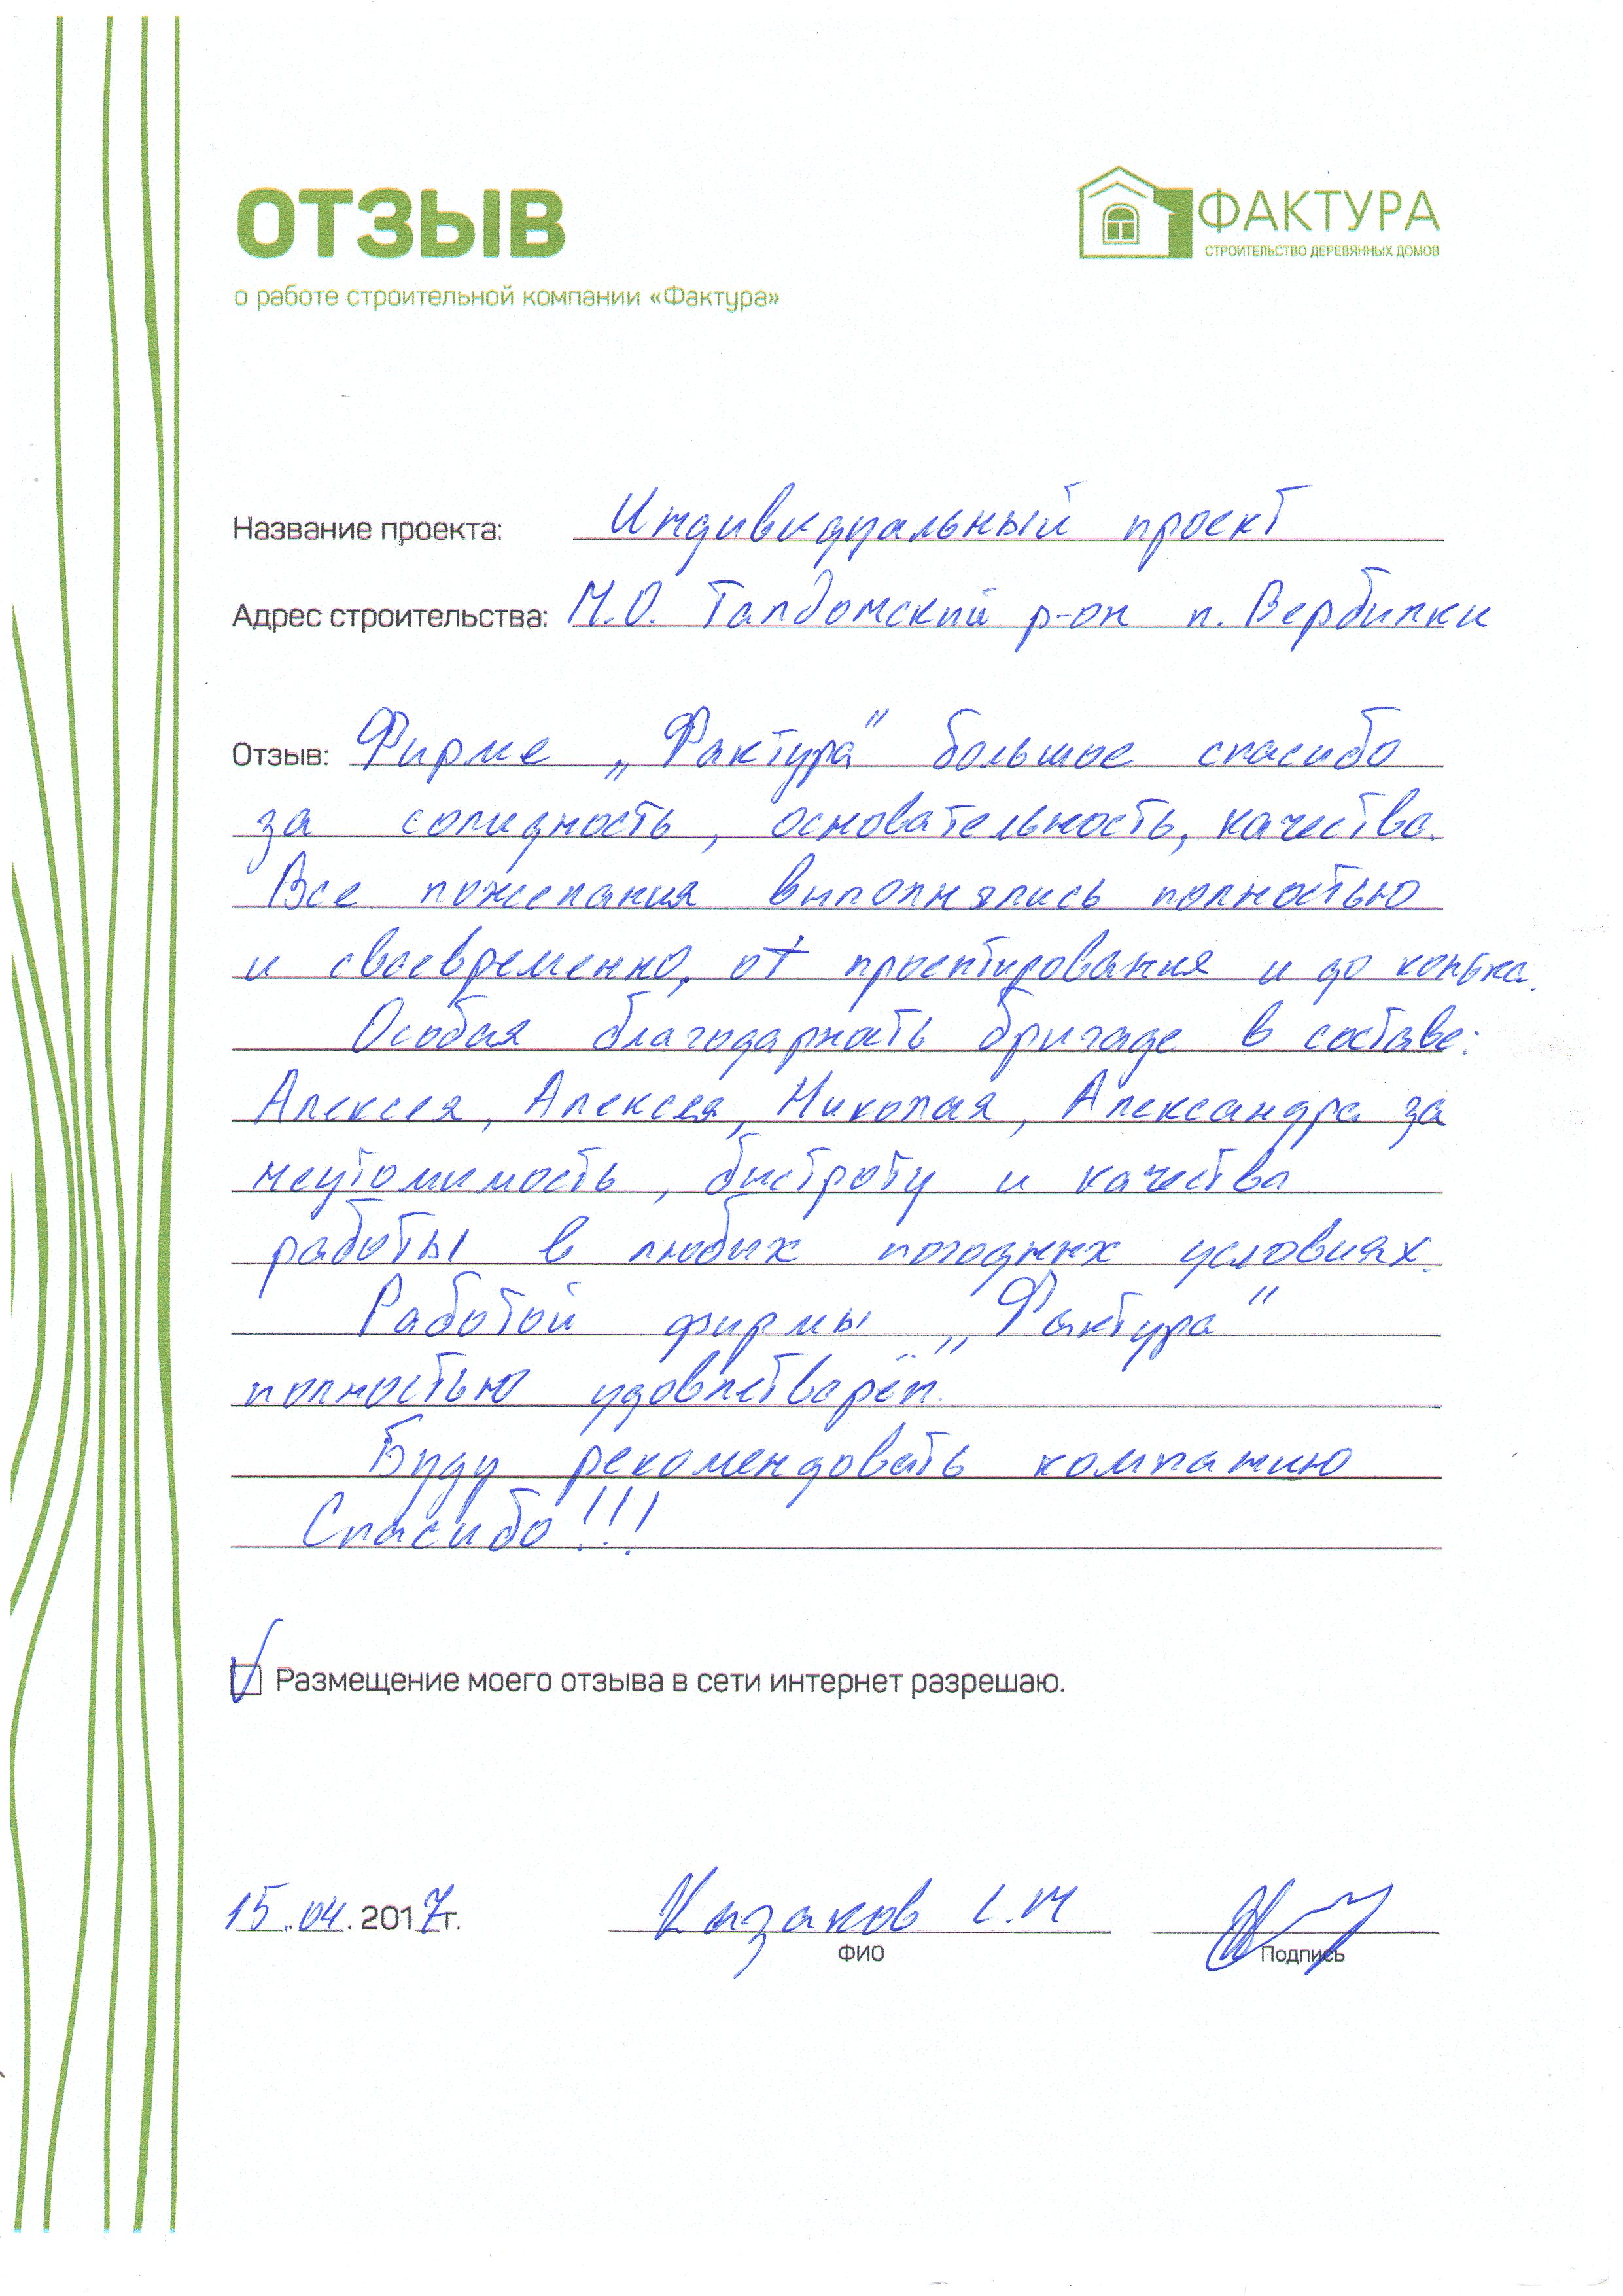 ОТЗЫВ
ФАКТУРА
СТРОИТЕЛЬСТВО ДЕРЕВЯННЫХ ДОМОВ
о работе строительной компании «Фактура»
Название проекта: Индивидуальный проект
Адрес строительства: М.О. Талдомский р-он п. Вербилки
Отзыв: Фирме „Фактура” большое спасибо
за солидность, основательность, качество.
Все пожелания выполнялись полностью
и своевременно, от проектирования и до конька.
Особая благодарность бригаде в составе:
Алексея, Алексея, Николая, Александра за
неутомимость, быстроту и качество
работы в любых погодных условиях.
Работой фирмы „Фактура”
полностью удовлетворён.
Буду рекомендовать компанию
Спасибо!!!
Размещение моего отзыва в сети интернет разрешаю.
15.04.2017г. Казаков С.М
ФИО Подпись